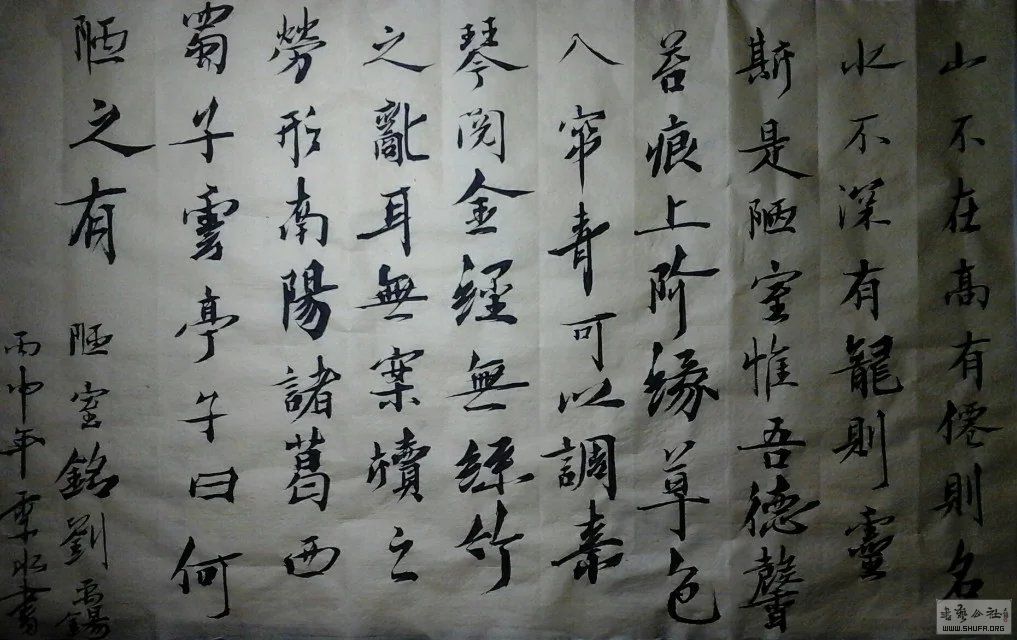 山不在高有僊則名
水不深有龍則靈
斯是陋室惟吾德馨
苔痕上阶緣草色
入帘青可以調素
琴閱金經無絲竹
之亂耳無案牘之
勞形南陽諸葛西
蜀子雲亭子曰何
陋之有 陋室銘劉禹錫
丙申年書
書藝公社
WWW.SHUFA.ORG